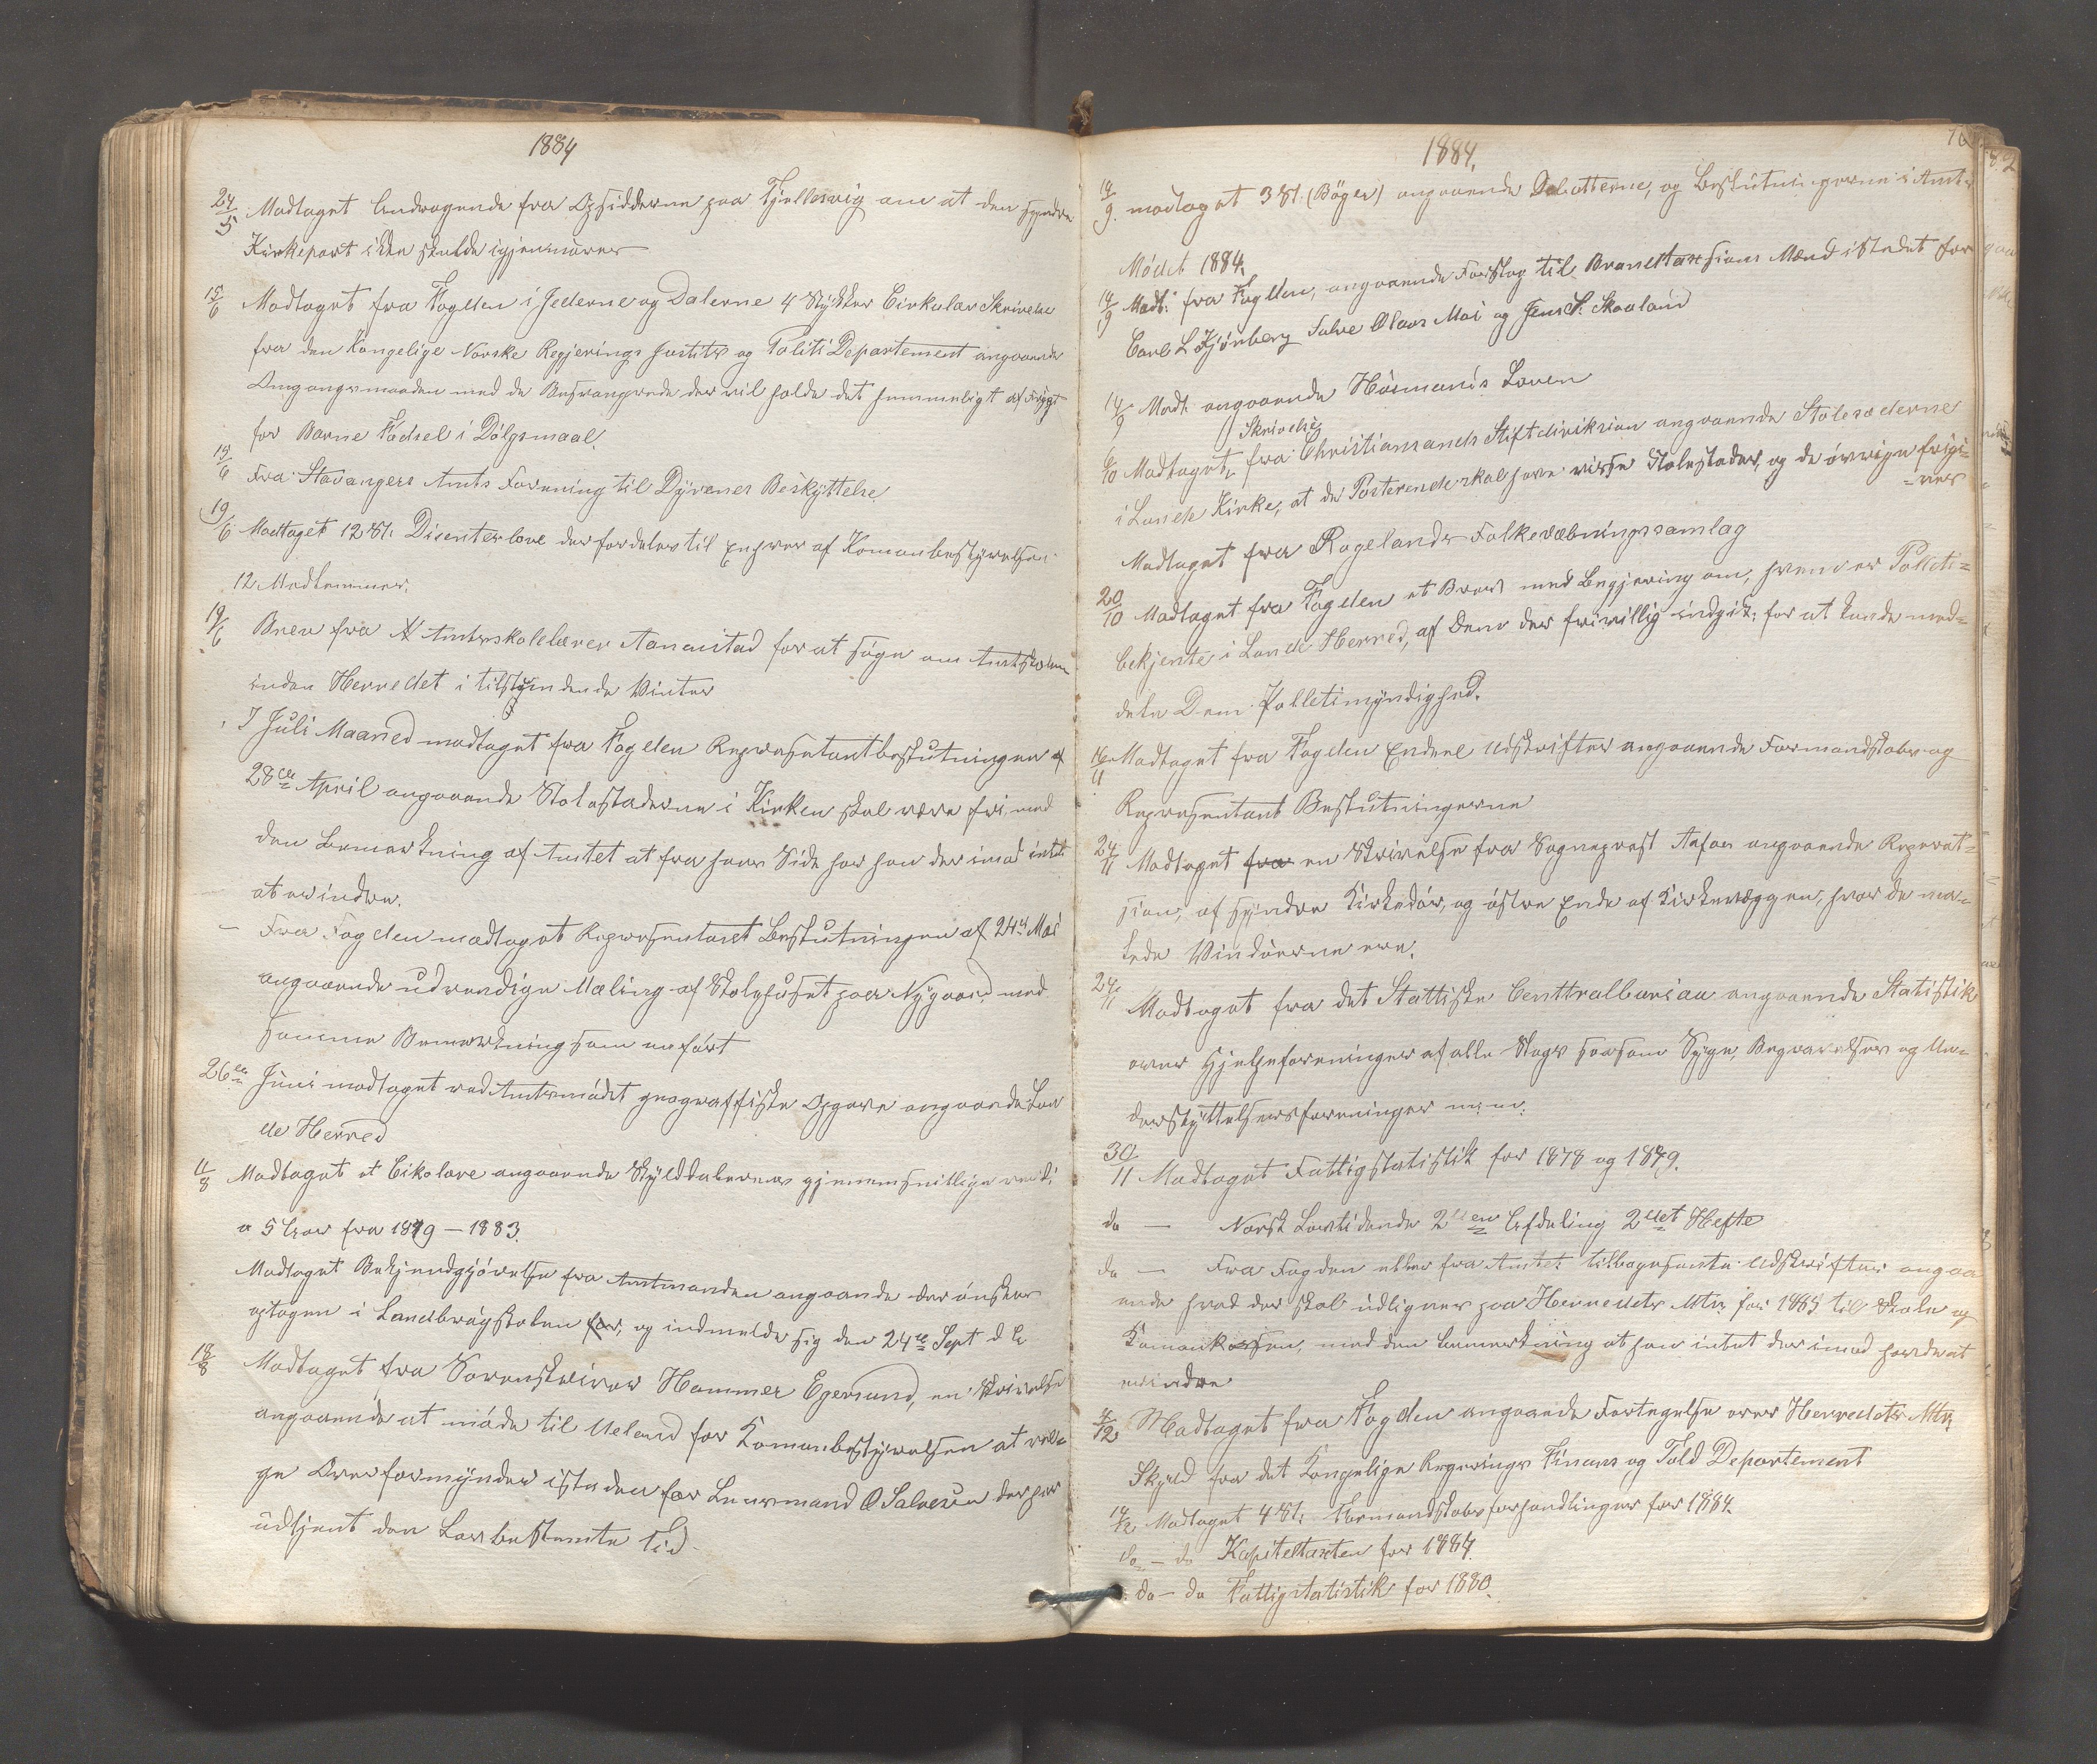 1884
24/5 Modtaget Andragende fra Opsidderne paa Fjellesvig om at den søndre
Kirkeport ikke skulde igjenmures
15/6 Modtaget fra Fogden i Jederne og Dalerne 4 Stykker Cirkulær Skrivelse
fra den Kongelige Norske Regjerings Justits og Politi Departement angaaende
Omgangsmaaden med de Besvangrede der vil holde det hemmeligt af Frygt
for Barne Fødsel i Dølgsmaal.
19/6 Fra Stavangers Amts Forening til Dyrenes Beskyttelse
19/6 Modtaget 12 St. Disenterlove der fordeles til Enhver af Komunbestyrelsen
12 Medlemmer.
19/6 Brev fra Amtsskolelærer Aanestad for at søge om Amtskolen
inden Herredet i tilstundende Vinter
I Juli Maaned modtaget fra Fogden Represetantbeslutningen af
28de April angaaende Stolestaderne i Kirken skal være fri, med
den Bemærkning af Amtet at fra hans Side har han der imod intet
at erindre.
– Fra Fogden modtaget Represetant Beslutningen af 24de Mai
angaaende udvendige Maling af Skolehuset paa Nygaard, med
samme Bemærkning som anført
26de Juni modtaget ved Amtsmødet geograffiske Opgave angaaende Lun
de Herred
11/8 Modtaget et Cikulære angaaende Skylddalerens gjennemsnitlige verdi
a 5 Aar fra 1879 – 1883.
Modtaget Bekjendgjørelse fra Amtmanden angaande der ønskes
optagen i Landbrugskolen for, og indmelde sig den 24de Sept d A
18/8 Modtaget fra Sorenskriver Hammer Egersund, en Skrivelse
angaaende at møde til Ueland for Komunbestyrelsen at vel=
ge Overformynder isteden for Lensmand O Salvesen der har
udtjent den Lovbestemte Tid.
1884.
14/9 modtaget 3 St. (Bøger) angaaende Debatterne, og Beslutningerne i Amts
Mødet 1884.
14/9 Modt. fra Fogden, angaaende Forslag til Brandtaxsions Mænd istedet for
Carl L Kjørberg Salve Olaus Moi og Jens S. Skaaland
14/9 Modt. angaaende Husmands Loven
Skrivelse
6/10 Modtaget, fra Christiansands Stiftdireksion angaaende Stolesæderne
i Lunde Kirke, at de Posterende skal have visse Stolestader, og de øvrige frigi=
=ves
Modtaget fra Rogelands Folkevæbningssamlag
20/10 Modtaget fra Fogden et Brev med Begjering om, hvem er Polleti=
bekjente i Lunde Herred, af Dem der frivillig indgik, for at kunde med=
dele Dem Polletimyndighed.
16/11 Modtaget fra Fogden Endeel Udskrifter angaaende Formandskabs og
Represetant Beslutningerne
24/11 Modtaget fra en Skrivelse fra Sogneprest Aafar angaaende Reperat=
sion, af søndre Kirkedør, og østre Ende af Kirkevæggen, hvor de ma=
lede Vinduerne ere.
24/11 Modtaget fra det Stattiske Centtralburiau angaaende Statistik
over Hjelpeforeninger af alle Slags saasom Syge, Begravelses og Un=
derstyttelsesforeninger m.m.
30/11 Modtaget Fattigstatistik for 1878 og 1879.
do – Norsk Lovtidende 2den Afdeling 2det Hefte
do – Fra Fogden eller fra Amtet tilbagesente Udskrifter angaa
ende hvad der skal udlignes paa Herredets Mtr. for 1885 til Skole og
Komunkassen, med den Bemærkning at han intet der imod havde at
erindre
4/12 Modtaget fra Fogden angaaende Fortegelse over Herredets Mtr.
Skyld fra det Kongelige Regerings Finans og Told Departement
14/12 Modtaget 4 St. Formandskabsforhandlinger for 1884.
do – do Kapiteltaxten for 1884.
do – do Fattigstatistik for 1880.